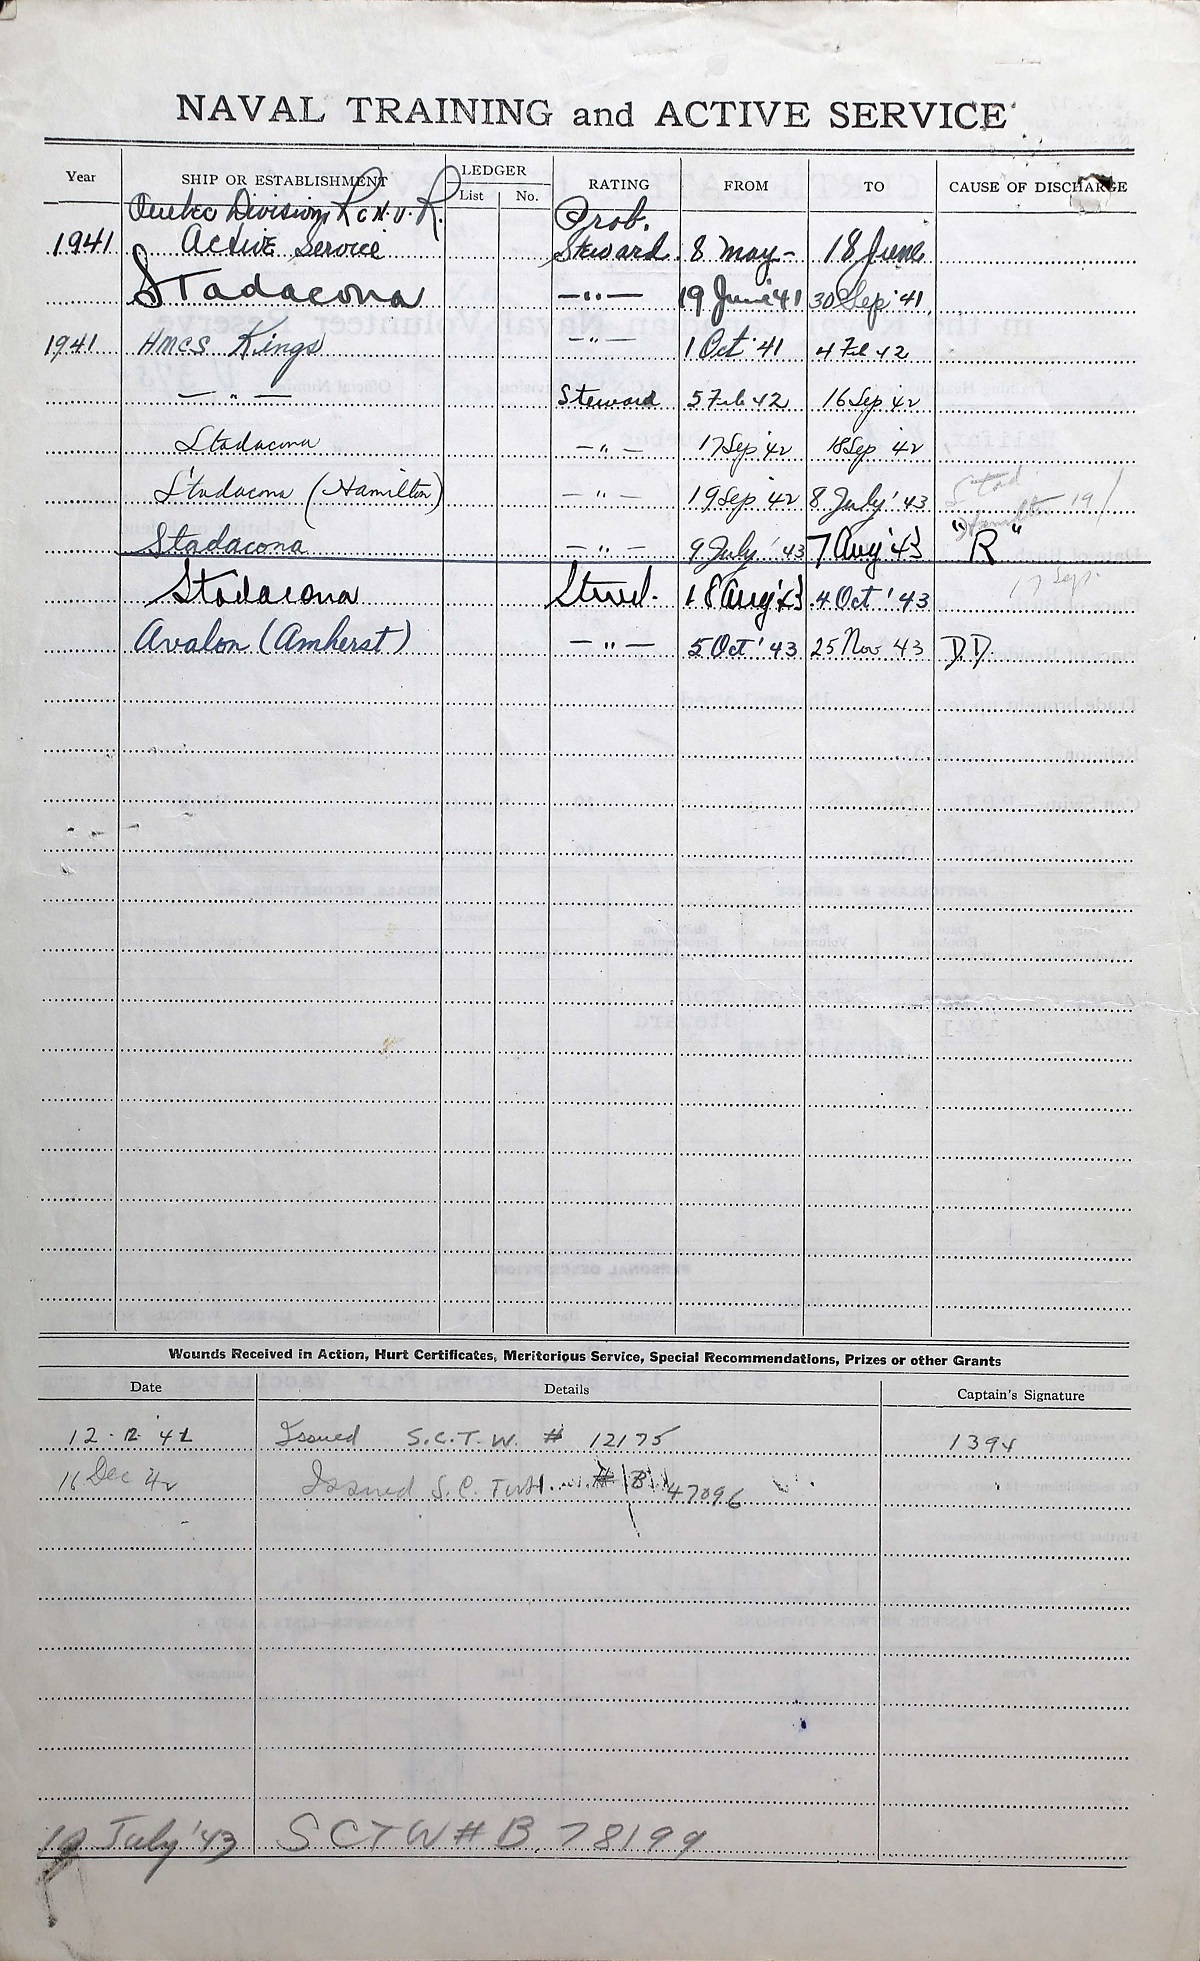 NAVAL TRAINING and ACTIVE SERVICE
Year SHIP OR ESTABLISHMENT LEDGER List No. RATING FROM TO CAUSE OF DISCHARGE
Quebec Division R.C.N.V.R. Prob.
1941 Active Service Steward. 8 May - 18 June
Stadacona — " — 19 June '41 30 Sep '41
1941 HMCS Kings — " — 1 Oct '41 4 Feb 42
— " — Steward 5 Feb 42 16 Sep 42
Stadacona — " — 17 Sep '42 18 Sep '42
Stadacona (Hamilton) — " — 19 Sep '42 8 July '43 Stad
Hamilton 19/
Stadacona — " — 9 July '43 7 Aug '43 "R"
17 Sep.
Stadacona Stwd. 18 Aug '43 4 Oct '43
Avalon (Amherst) — " — 5 Oct '43 25 Nov '43 D.D.
Wounds Received in Action, Hurt Certificates, Meritorious Service, Special Recommendations, Prizes or other Grants
Date Details Captain's Signature
12 · 12 '41 Issued S.C.T.W. # 12175 1394
16 Dec 42 Issued S.C. # 47096
19 July '43 SCTW # B 78199